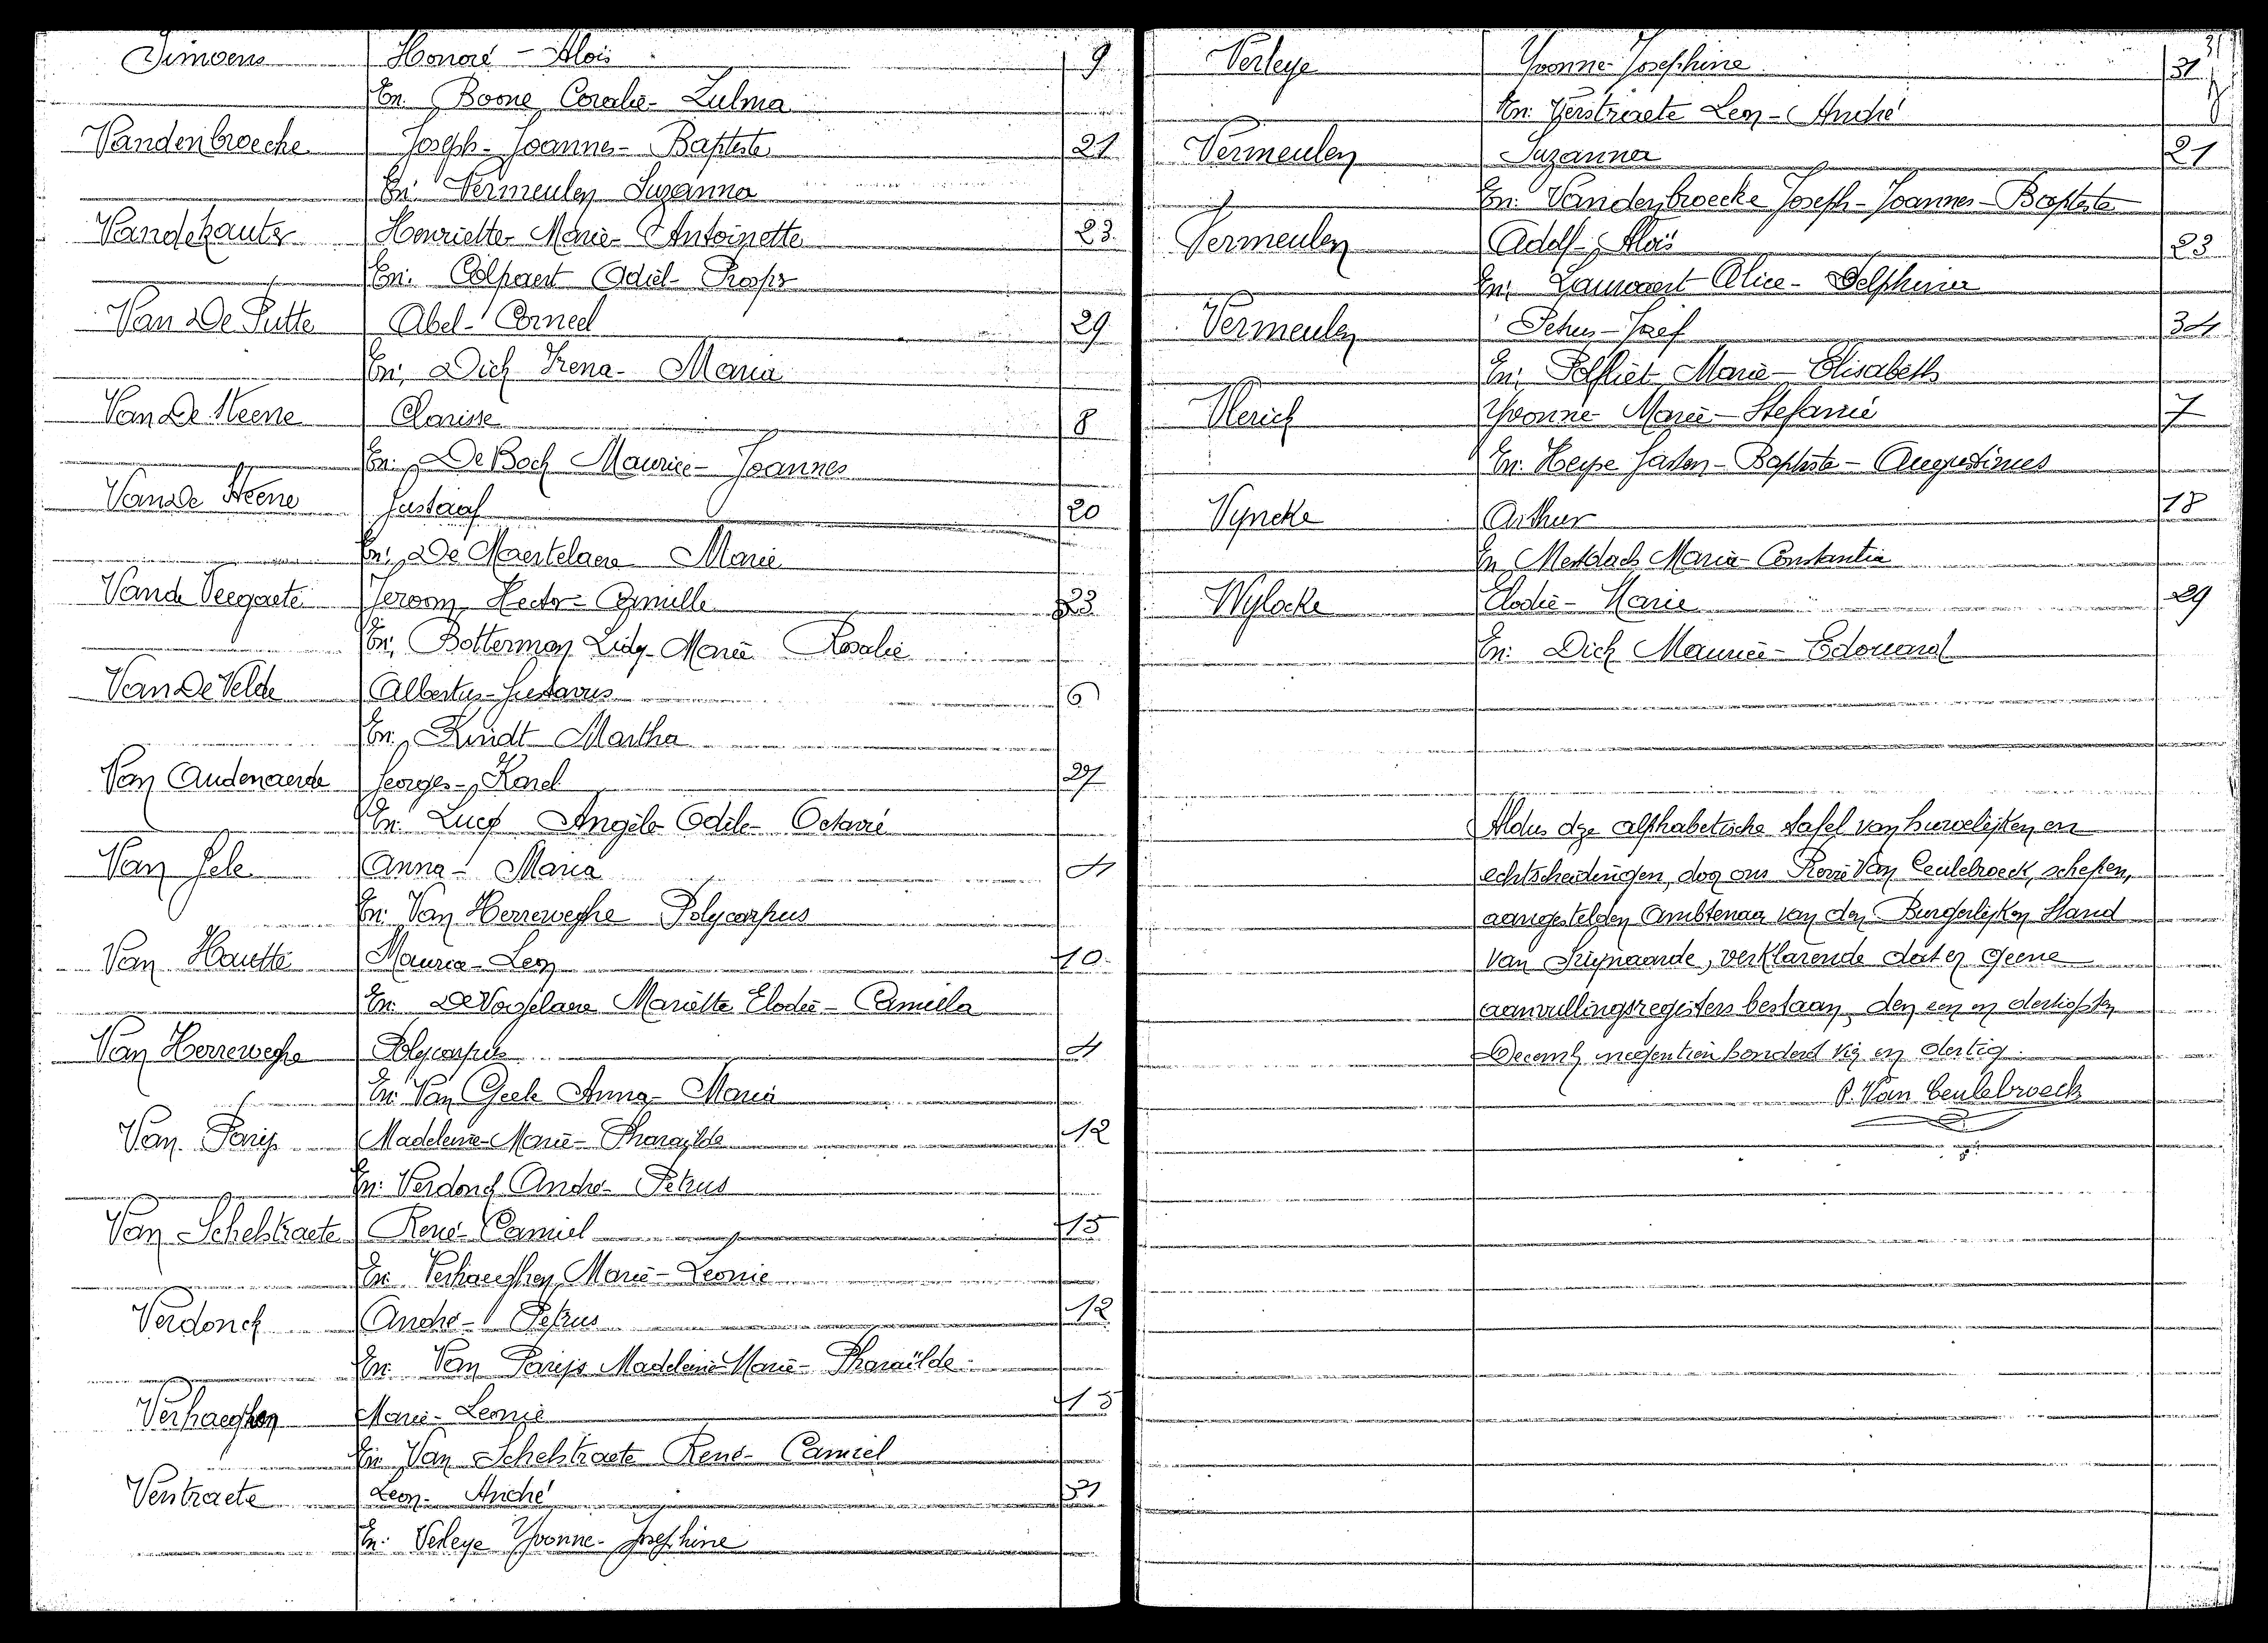 Simoens Honoré - Aloïs 9
En: Boone Coralie - Zulma
Vandenbroecke Joseph - Joannes - Baptiste 21
En: Vermeulen Suzanna
Vandekauter Henriette Marie - Antoinette 23
En: Colpaert Odiel - Prosper
Van De Putte Abel - Corneel 29
En: Dick Irena - Maria
Van De Steene Clarisse 8
En: De Bock Maurice - Joannes
Van De Steene Gustaaf 20
En: De Maertelaere Marie
Vande Veegaete Jeroom Hector - Camille 33
En: Botterman Lidy - Marie Rosalie
Van De Velde Albertus - Gustavus 6
En: Kindt Martha
Van Audenaerde Georges - Karel 27
En: Lucq Angèle Odile - Octavie
Van Gele Anna - Maria 4
En: Van Herreweghe Polycarpus
Van Hautte Maurice - Leon 10
En: De Vogelaere Mariette Elodie - Camiela
Van Herreweghe Polycarpus 4
En: Van Geele Anna - Maria
Van Parijs Madeleine - Marie - Pharaïlde 12
En: Verdonck André - Petrus
Van Schelstraete René - Camiel 15
En: Verhaeghen Marie - Leonie
Verdonck André - Petrus 12
En: Van Parijs Madeleine Marie - Pharaïlde
Verhaeghen Marie - Leonie 15
En: Van Schelstraete René - Camiel
Verstraete Leon - André 31
En: Verleye Yvonne - Josephine
31
Verleye Yvonne - Josephine 31
En: Verstraete Leon - André
Vermeulen Suzanna 21
En: Vandenbroecke Joseph - Joannes - Baptiste
Vermeulen Adolf - Aloïs 23
En: Lauwaert Alice - Delphina
Vermeulen Petrus - Jozef 34
En: Polfliet Marie - Elisabeth
Vlerick Yvonne - Marie - Stefanie 7
En: Heype Gaston - Baptiste - Augustinus
Vyncke Arthur 18
En Mestdach Maria - Constantia
Wylocke Elodie - Marie 29
En: Dick Maurice - Edouard
Aldus dze alphabetische tafel van huwelijken en
echtscheidingen, door ons Remi Van Ceulebroeck, schepen,
aangestelden Ambtenaar van den Burgerlijken Stand
van Zwijnaarde, verklarende dat er geene
aanvullingsregisters bestaan, den een en dertigsten
Decemb. negentien honderd vijf en dertig.
P. Van Ceulebroeck